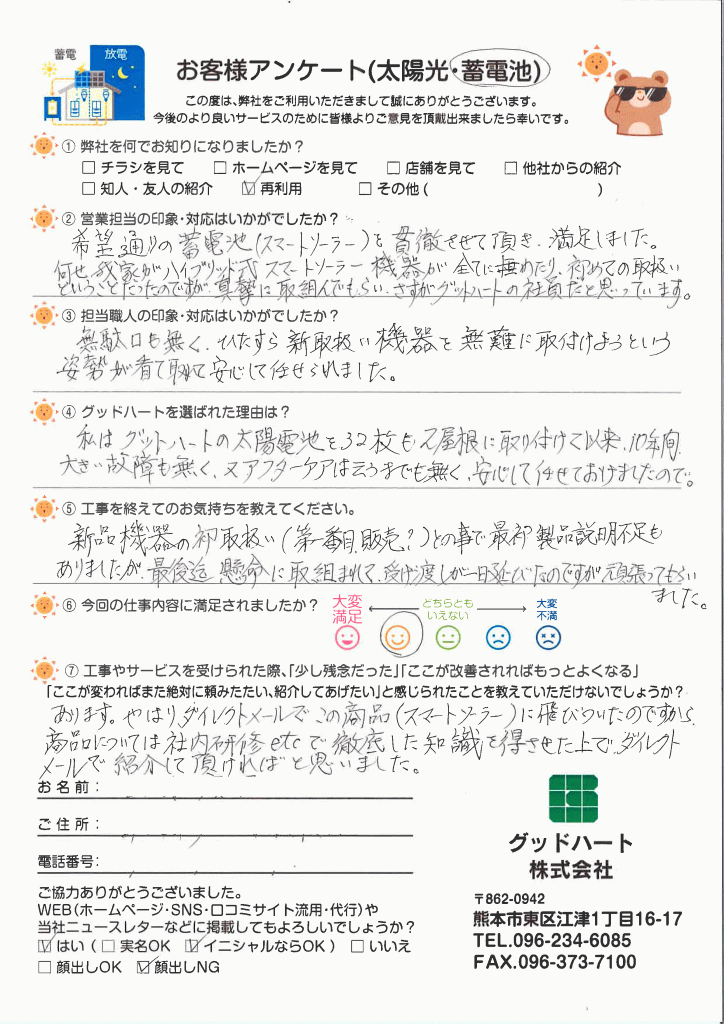 蓄電 放電
お客様アンケート(太陽光・蓄電池)
この度は、弊社をご利用いただきまして誠にありがとうございます。
今後のより良いサービスのために皆様よりご意見を頂戴出来ましたら幸いです。
① 弊社を何でお知りになりましたか?
□ チラシを見て □ ホームページを見て □ 店舗を見て □ 他社からの紹介
□ 知人・友人の紹介 ☑ 再利用 □ その他 ( )
② 営業担当の印象・対応はいかがでしたか?
希望通りの蓄電池(スマートソーラー)を貫徹させて頂き、満足しました。
何せ、我家がハイブリッド式スマートソーラー機器が全てに極めたり、初めての取扱い
ということだったのですが真摯に取組んでもらい、さすがグットハートの社員だと思っています。
③ 担当職人の印象・対応はいかがでしたか?
無駄口も無く、ひたすら新取扱い機器を無難に取付けようという
姿勢が看て取れて安心して任せられました。
④ グッドハートを選ばれた理由は?
私はグットハートの太陽電池を32枚も 屋根に取り付けて以来、10年間
大きい故障も無く、又アフターケアは云うまでも無く、安心して任せておけましたので。
⑤ 工事を終えてのお気持ちを教えてください。
新品機器の初取扱い(第一番目販売?)との事で最初製品説明不足も
ありましたが、最後迄 懸命に取組まれて、受け渡しが一日延びたのですが頑張ってもらい
ました。
⑥ 今回の仕事内容に満足されましたか?
大変満足 どちらともいえない 大変不満
⑦ 工事やサービスを受けられた際、「少し残念だった」「ここが改善されればもっとよくなる」
「ここが変わればまた絶対に頼みたたい、紹介してあげたい」と感じられたことを教えていただけないでしょうか?
あります。やはりダイレクトメールでこの商品(スマートソーラー)に飛びついたのですから
商品については社内研修etcで徹底した知識を得させた上で、ダイレクト
メールで紹介して頂ければと思いました。
お名前:
ご住所:
電話番号:
ご協力ありがとうございました。
WEB(ホームページ・SNS・口コミサイト流用・代行)や
当社ニュースレターなどに掲載してもよろしいでしょうか?
☑ はい ( □ 実名OK ☑ イニシャルならOK ) □ いいえ
□ 顔出しOK ☑ 顔出しNG
グッドハート
株式会社
〒862-0942
熊本市東区江津1丁目16-17
TEL.096-234-6085
FAX.096-373-7100